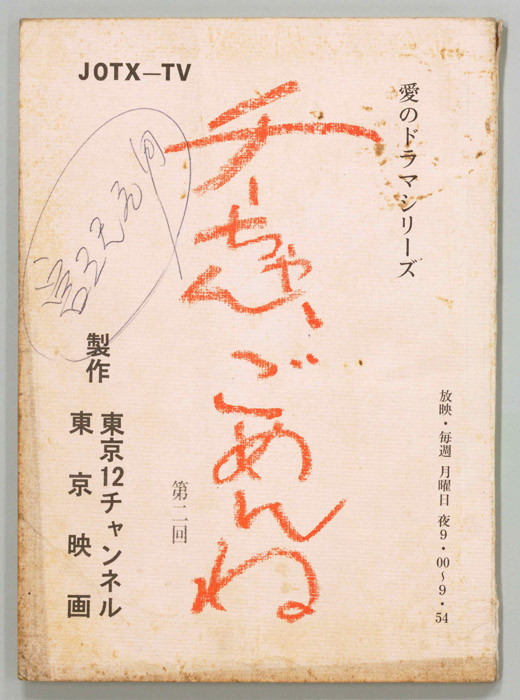 JOTX—TV
愛のドラマシリーズ
チーちゃん、ごめんね
第二回
放映・毎週 月曜日 夜9・00〜9・54
製作 東京12チャンネル
東京映画